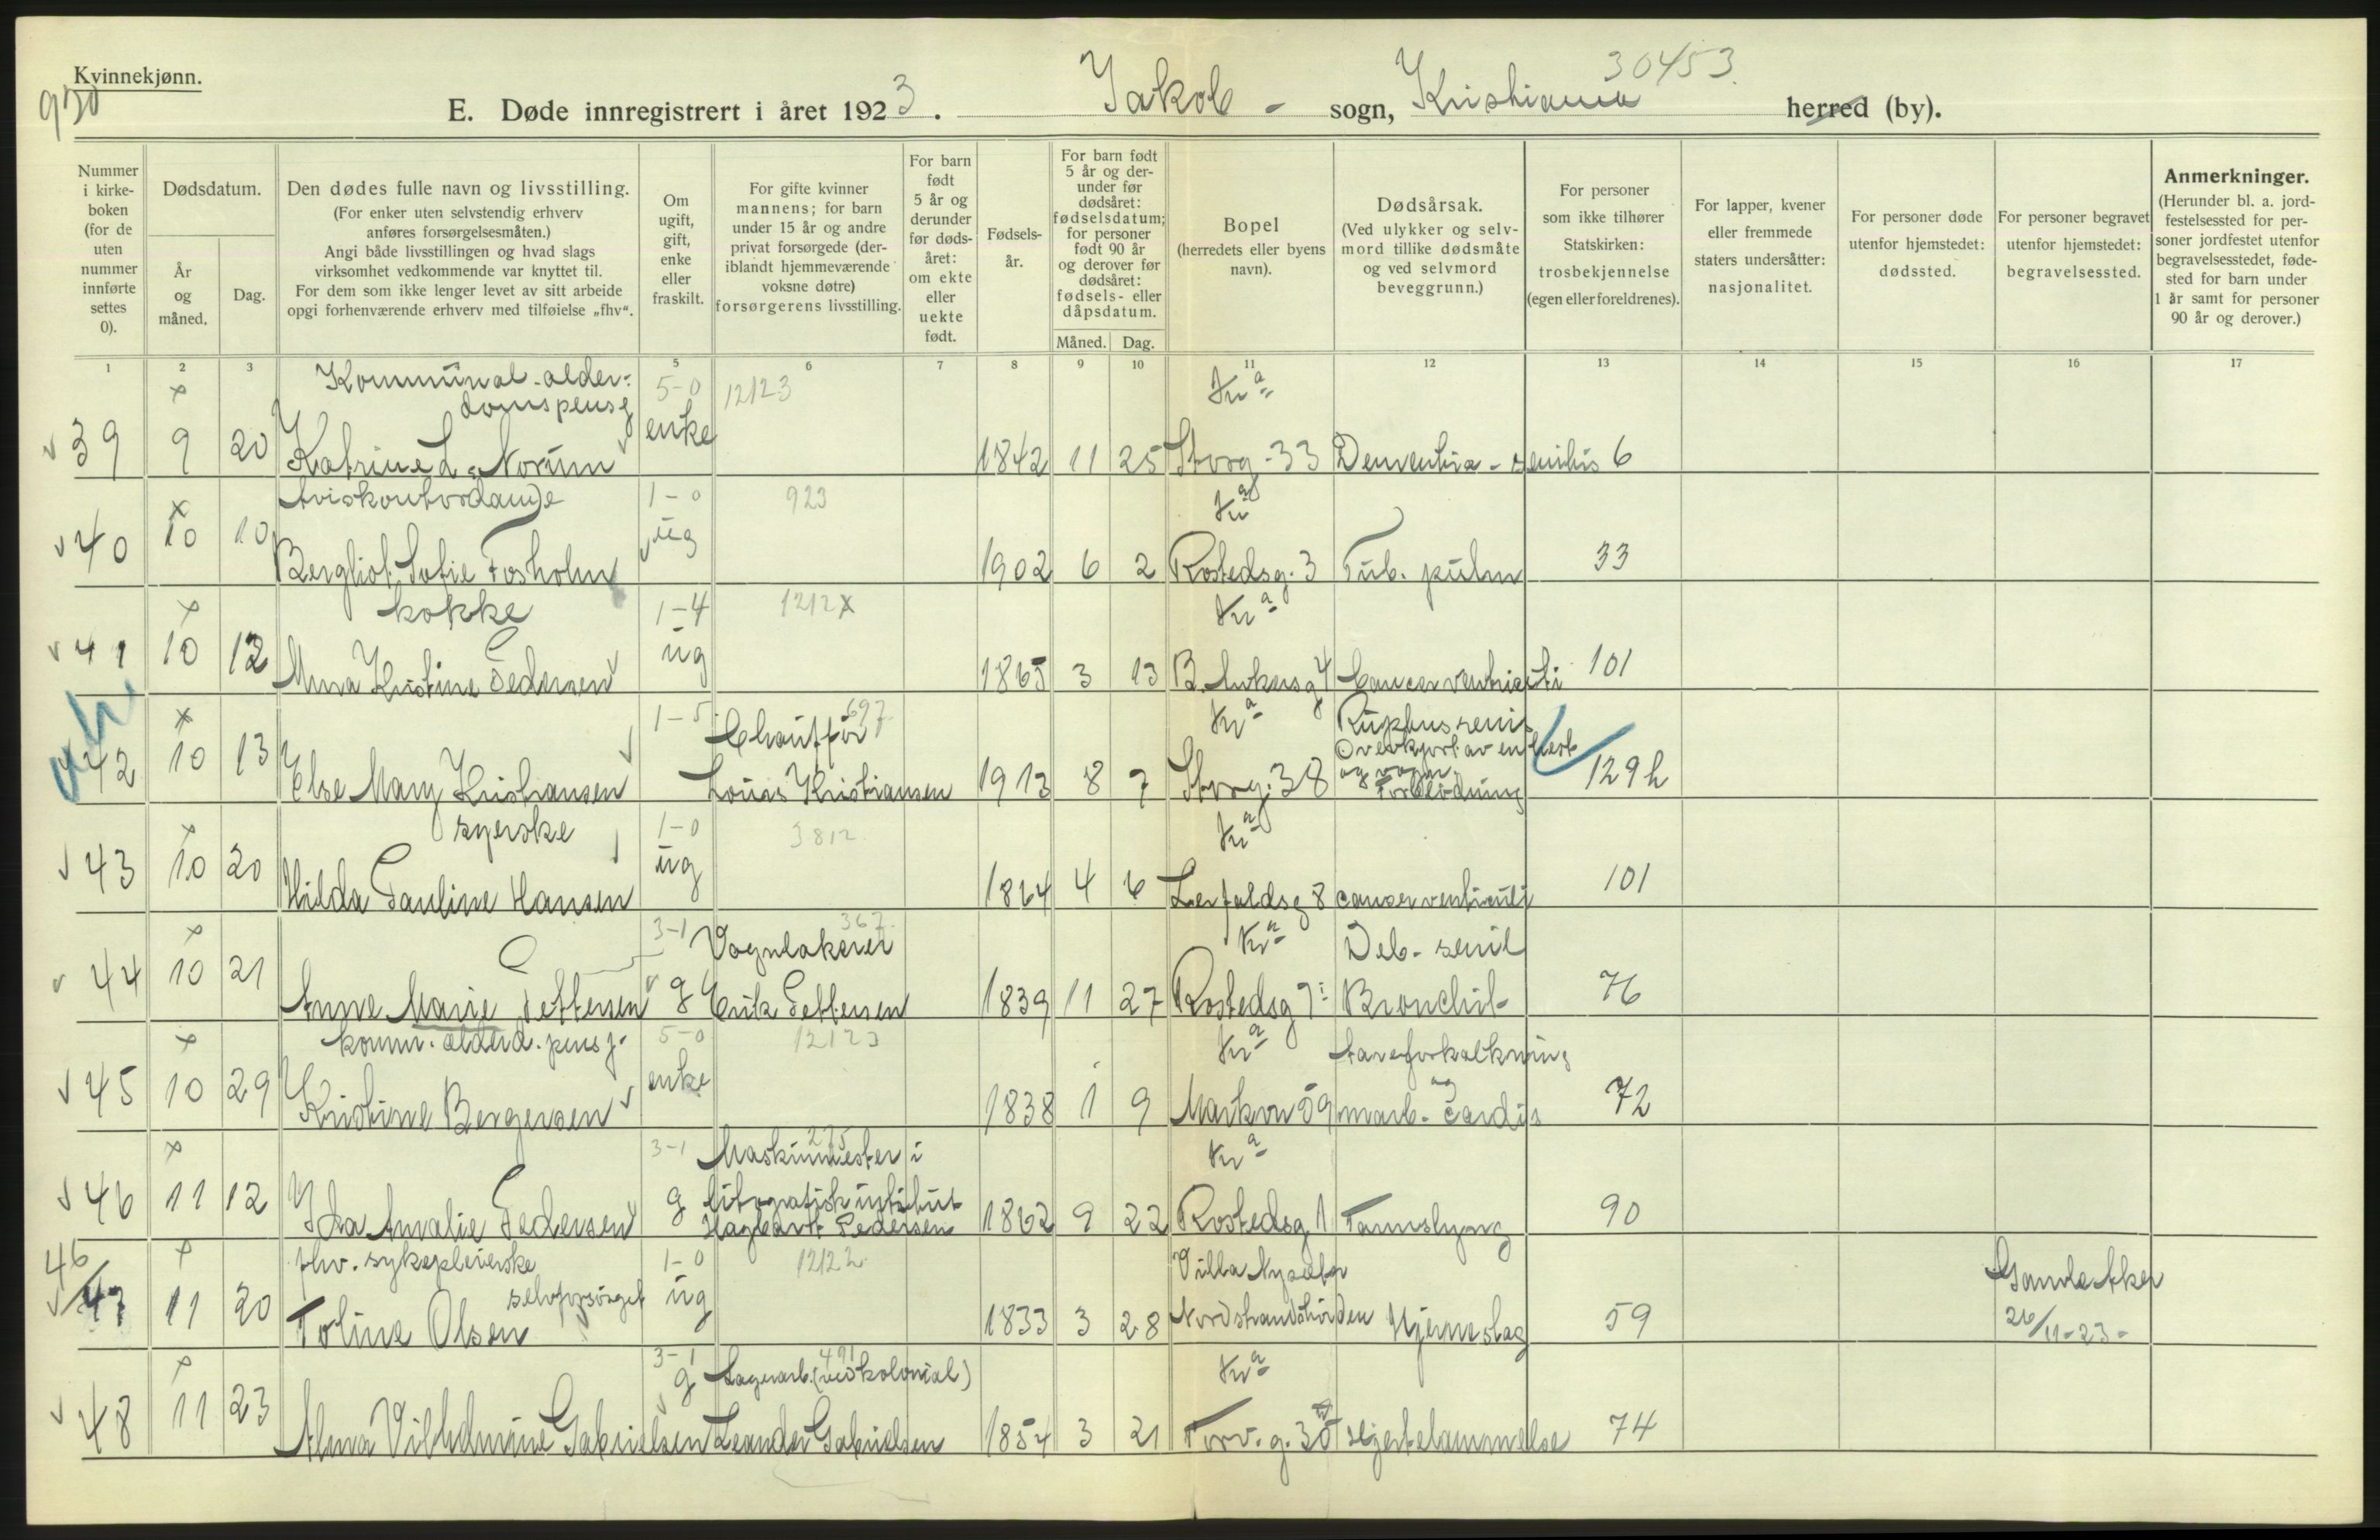 Kvinnekjønn.
930
30453.
E. Døde innregistrert i året 1923. Jakob - sogn, Kristiania herred (by).
Nummer i kirkeboken (for de uten nummer innførte settes 0).
Dødsdatum.
År og måned.
Dag.
Den dødes fulle navn og livsstilling.
(For enker uten selvstendig erhverv anføres forsørgelsesmåten.)
Angi både livsstillingen og hvad slags virksomhet vedkommende var knyttet til.
For dem som ikke lenger levet av sitt arbeide opgi forhenværende erhverv med tilføielse „fhv“.
Om ugift, gift, enke eller fraskilt.
For gifte kvinner mannens; for barn under 15 år og andre privat forsørgede (deriblandt hjemmeværende voksne døtre) forsørgerens livsstilling.
For barn født 5 år og derunder før dødsåret: om ekte eller uekte født.
Fødselsår.
For barn født 5 år og derunder før dødsåret: fødselsdatum; for personer født 90 år og derover før dødsåret: fødsels- eller dåpsdatum.
Måned. Dag.
Bopel (herredets eller byens navn).
Dødsårsak.
(Ved ulykker og selvmord tillike dødsmåte og ved selvmord beveggrunn.)
For personer som ikke tilhører Statskirken: trosbekjennelse (egen eller foreldrenes).
For lapper, kvener eller fremmede staters undersåtter: nasjonalitet.
For personer døde utenfor hjemstedet: dødssted.
For personer begravet utenfor hjemstedet: begravelsessted.
Anmerkninger.
(Herunder bl. a. jordfestelsessted for personer jordfestet utenfor begravelsesstedet, fødested for barn under 1 år samt for personer 90 år og derover.)
1 2 3 5 6 7 8 9 10 11 12 13 14 15 16 17
x Kommunal-alderdomspensj 5-0 12123 Kra
39 9 20 Katrine L. Norum enke 1842 11 25 Storg-33 Dementia-senilis 6
x Aviskontordame 1-0 923 Kra
40 10 10 Bergliot Sofie Fosholm ug 1902 6 2 Rostedsg. 3 Tub. pulm 33
x kokke 1-4 1212X Kra
41 10 12 Anna Kristine Pedersen ug 1865 3 13 Cancer ventriculi 101
x 1-5 Chauffør 697 Kra Overkjørt av en hest og vogn
42 10 13 Else Mary Kristiansen Louis Kristiansen 1913 8 7 Storg. 38 Forblødning 129h
x syerske 1-0 3812. Kra
43 10 20 Hilda Pauline Hansen ug 1864 4 6 Lerfaldsg 8 cancer ventriculi 101
x 3-1 Vognlakerer 367 Kra Deb-senil
44 10 21 Anne Marie Pettersen g Erik Pettersen 1839 11 27 Rostedsg 7 Bronchit- 76
x komm. alderd. pensj. 5-0 12123 Kra Aareforkalkning og
45 10 29 Kristine Bergersen enke 1838 1 9 Markvn 59 morb-cordis 72
x 3-1 Maskinmester i 275 Kra
46 11 12 Ida Amalie Pedersen g litografisk institut Hagbart Pedersen 1862 9 22 Rostedsg 1 90
46 x fhv. sykepleierske selvforsørget 1-0 12122 Villa
47 11 20 Toline Olsen ug 1833 3 28 Hjerneslag 59 Gamle Aker 26/11-23-
x 3-1 Lagerarb. (ved kolonial) 491 Kra
48 11 23 Alma Vilhelmine Gabrielsen g Leander Gabrielsen 1854 3 21 Torv. g. 30 Hjertelammelse 74